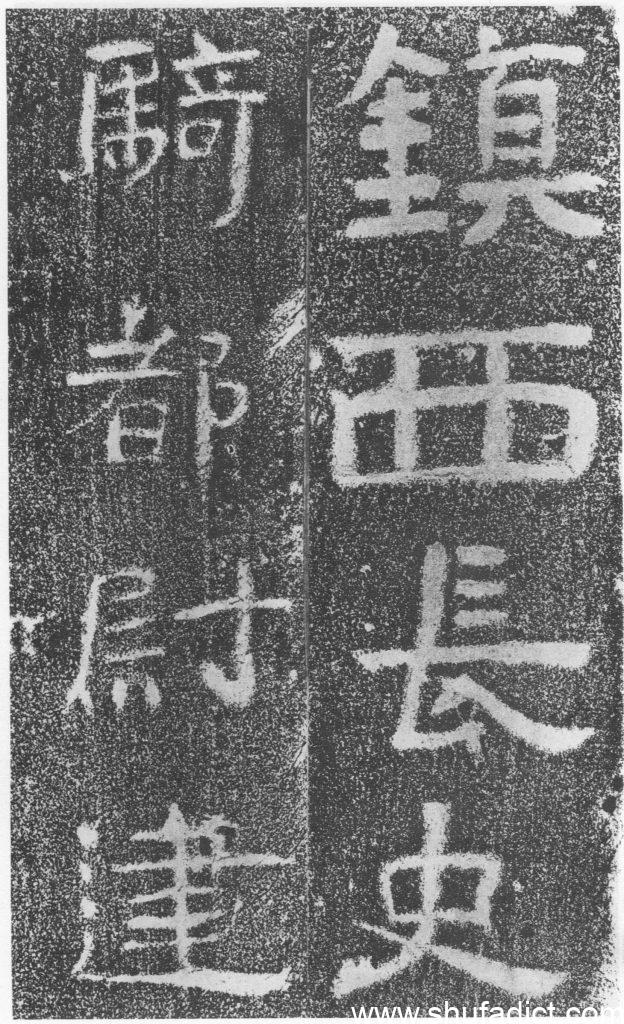 鎮西長史
騎都尉建
www.shufadict.com